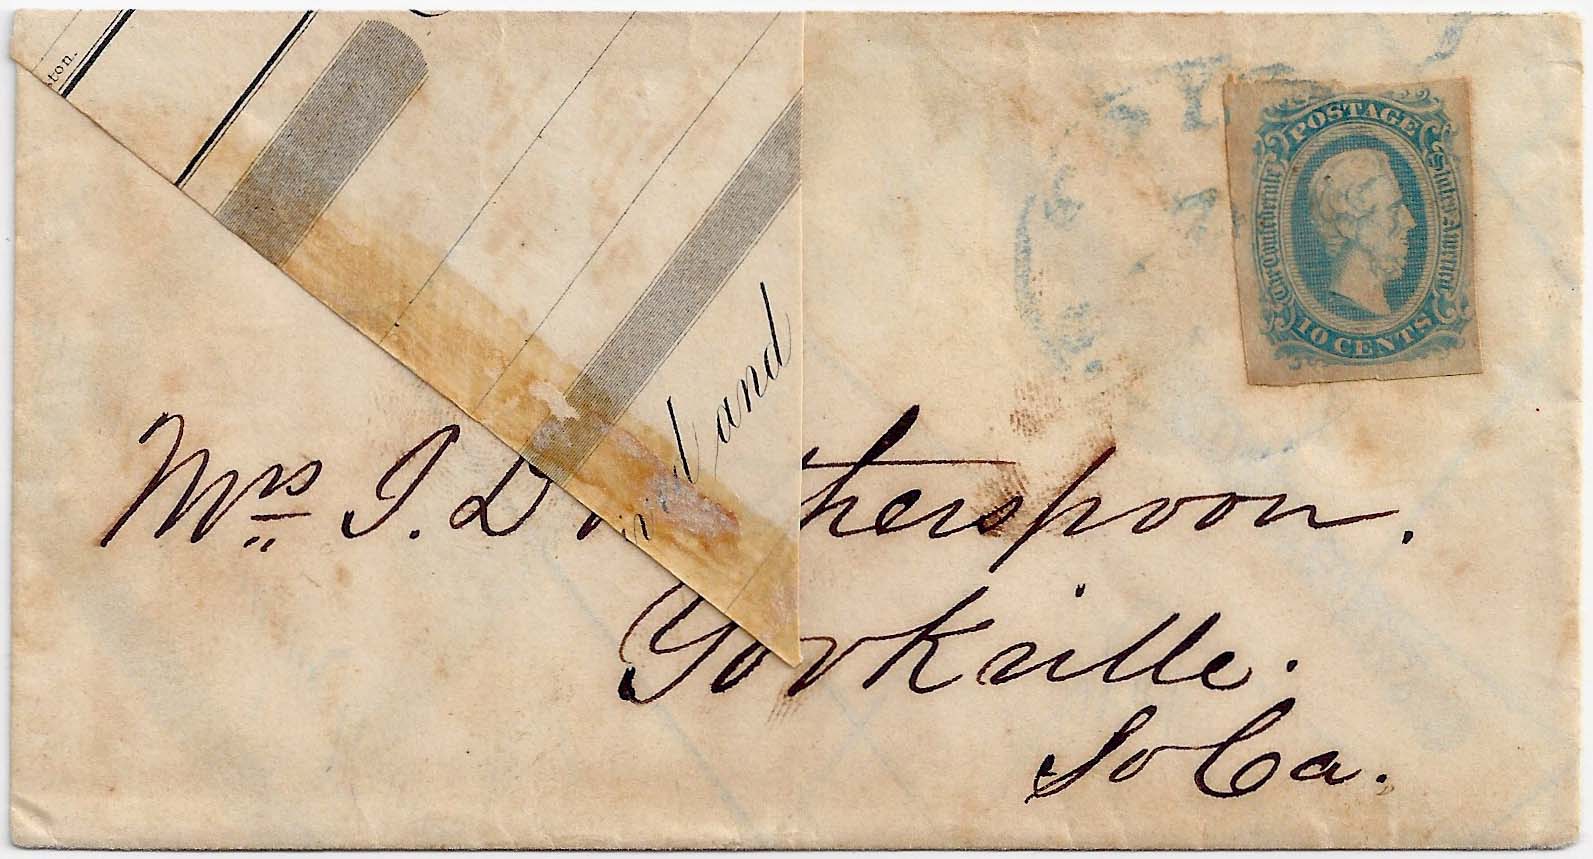 ton.
and
POSTAGE
The Confederate
States of America
10 CENTS
Mrs I. D. therspoon.
Yorkville.
So Ca.